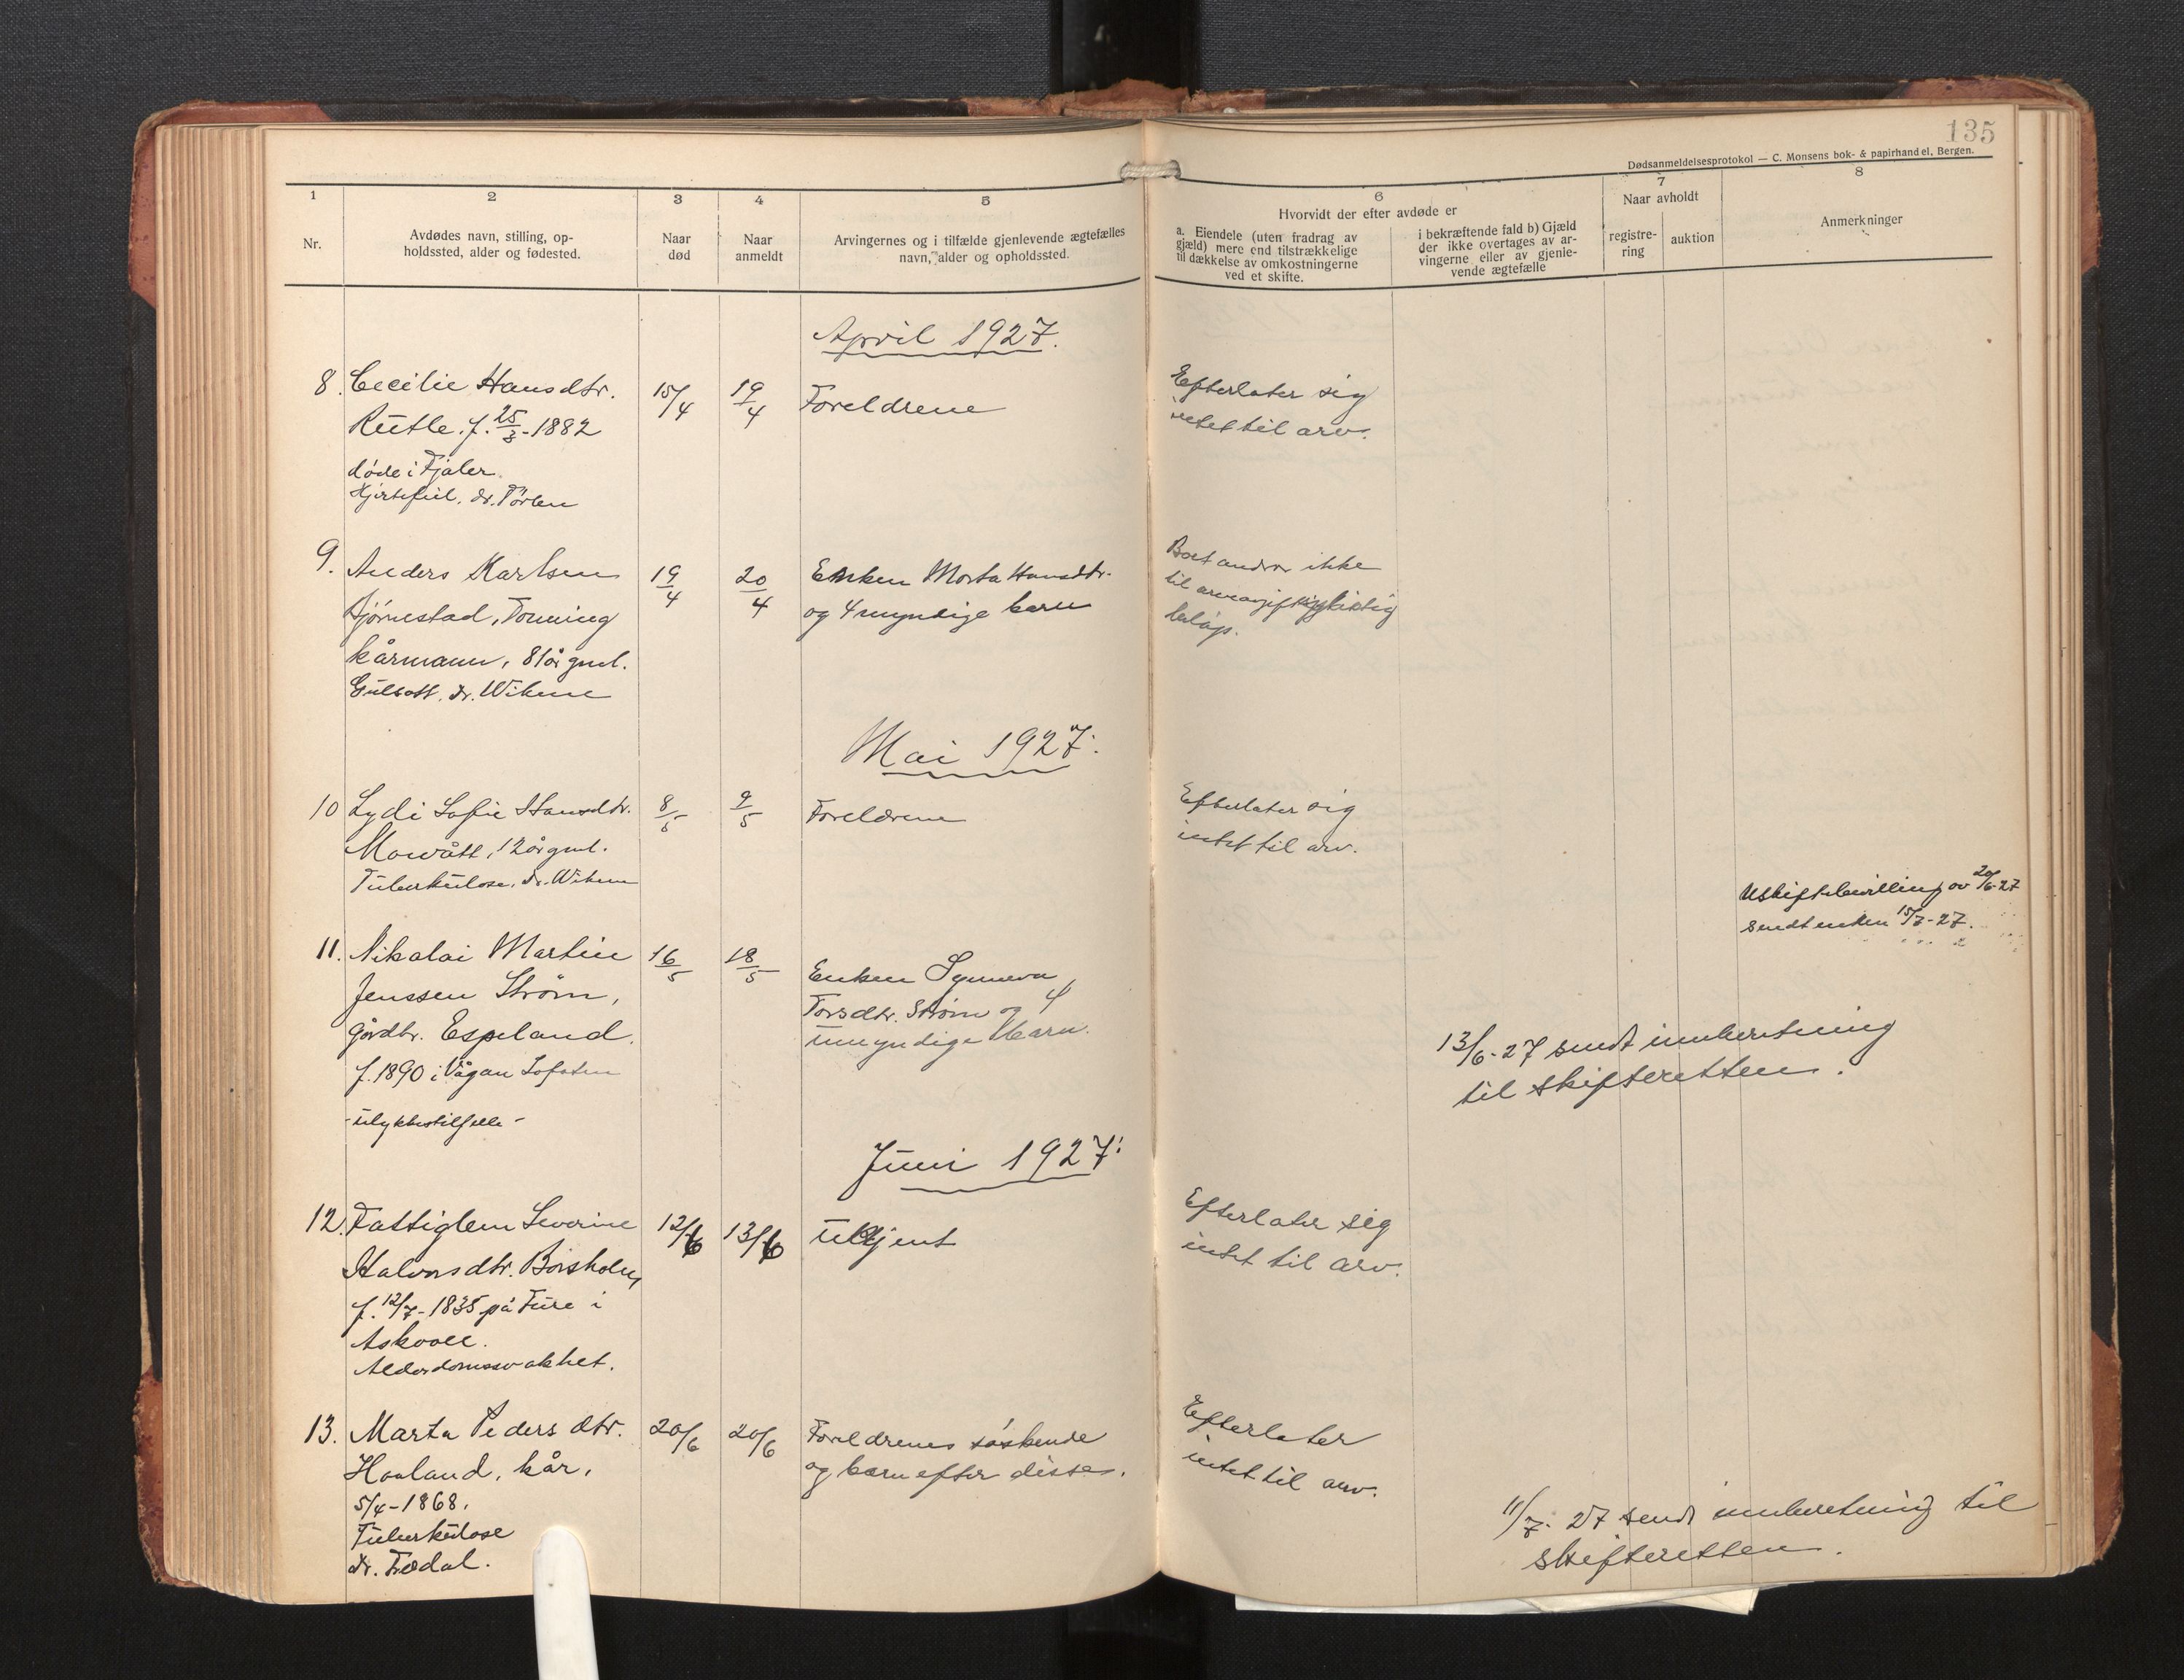 135
Dødsanmeldelsesprotokol — C. Monsens bok- & papirhandel, Bergen.
1
Nr.
2
Avdødes navn, stilling, op-
holdssted, alder og fødested.
3
Naar
død
4
Naar
anmeldt
5
Arvingernes og i tilfælde gjenlevende ægtefælles
navn, alder og opholdssted.
6
Hvorvidt der efter avdøde er
a. Eiendele (uten fradrag av
gjæld) mere end tilstrækkelige
til dækkelse av omkostningerne
ved et skifte.
i bekræftende fald b) Gjæld
der ikke overtages av ar-
vingerne eller av gjenle-
vende ægtefælle
7
Naar avholdt
registre-
ring
auktion
8
Anmerkninger
April 1927.
8. Cecilie Hansdtr. 15/4 19/4 Foreldrene Efterlater sig
Rutle. f. 25/3-1882 intet til arv.
døde i Fjaler
Hjertefeil. dr.
9. Anders Karlsen 19/4 20/4 Enken Marta Hansdtr. Boet andrar ikke
Bjørnestad, Tonning og 4 myndige barn til arveavgiftspliktig
kårmann, 81 år gml. beløp.
Gulsott. dr. Wikene
Mai 1927.
10 Lydi Sofie Hansdtr. 8/5 9/5 Foreldrene Efterlater sig
Mowått, 12 år gml. intet til arv.
Tuberkulose. dr. Wikene
Uskiftebevilling av 20/6-27
sendt enken 15/7-27.
11. Nikolai Martin 16/5 18/5 Enken Synneva
Jenssen Strøm, Torsdtr. Strøm og 4
gårdbr. Espeland. umyndige barn.
f. 1890 i Vågan Lofoten
- ulykkestilfelle -
13/6-27 sendt innberetning
til skifteretten.
Juni 1927.
12. Fattiglem Severine 12/6 13/6 Ukjent Efterlater sig
Halvorsdtr. Borsholm intet til arv.
f. 12/7-1835 på Fure i
Askvoll.
Alderdomssvakhet.
13. Marta Pedersdtr. 20/6 20/6 Foreldrenes søskende Efterlater
Haaland, kår, og barn efter disse. intet til arv.
5/4-1868.
Tuberkulose
dr. Tredal.
11/7-27 sendt innberetning til
skifteretten.